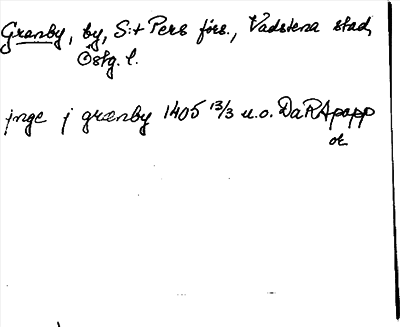 Granby, by, S:t Pers förs., Vadstena stad,
Östg. l.
jnge j grænby 1405 13/3 u.o. DaRA papp
ok